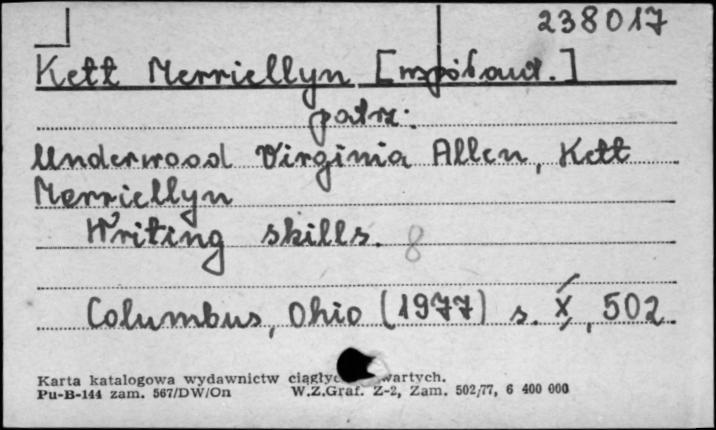 238017
Kett Merriellyn [współaut.]
patrz:
Underwood Virginia Allen, Kett
Merriellyn
Writing skills. 8
Columbus, Ohio (1977) s. X, 502
Karta katalogowa wydawnictw
Pu-B-144 zam. 567/DW/On W.Z.Graf. Z-2, Zam. 502/77, 6 400 000